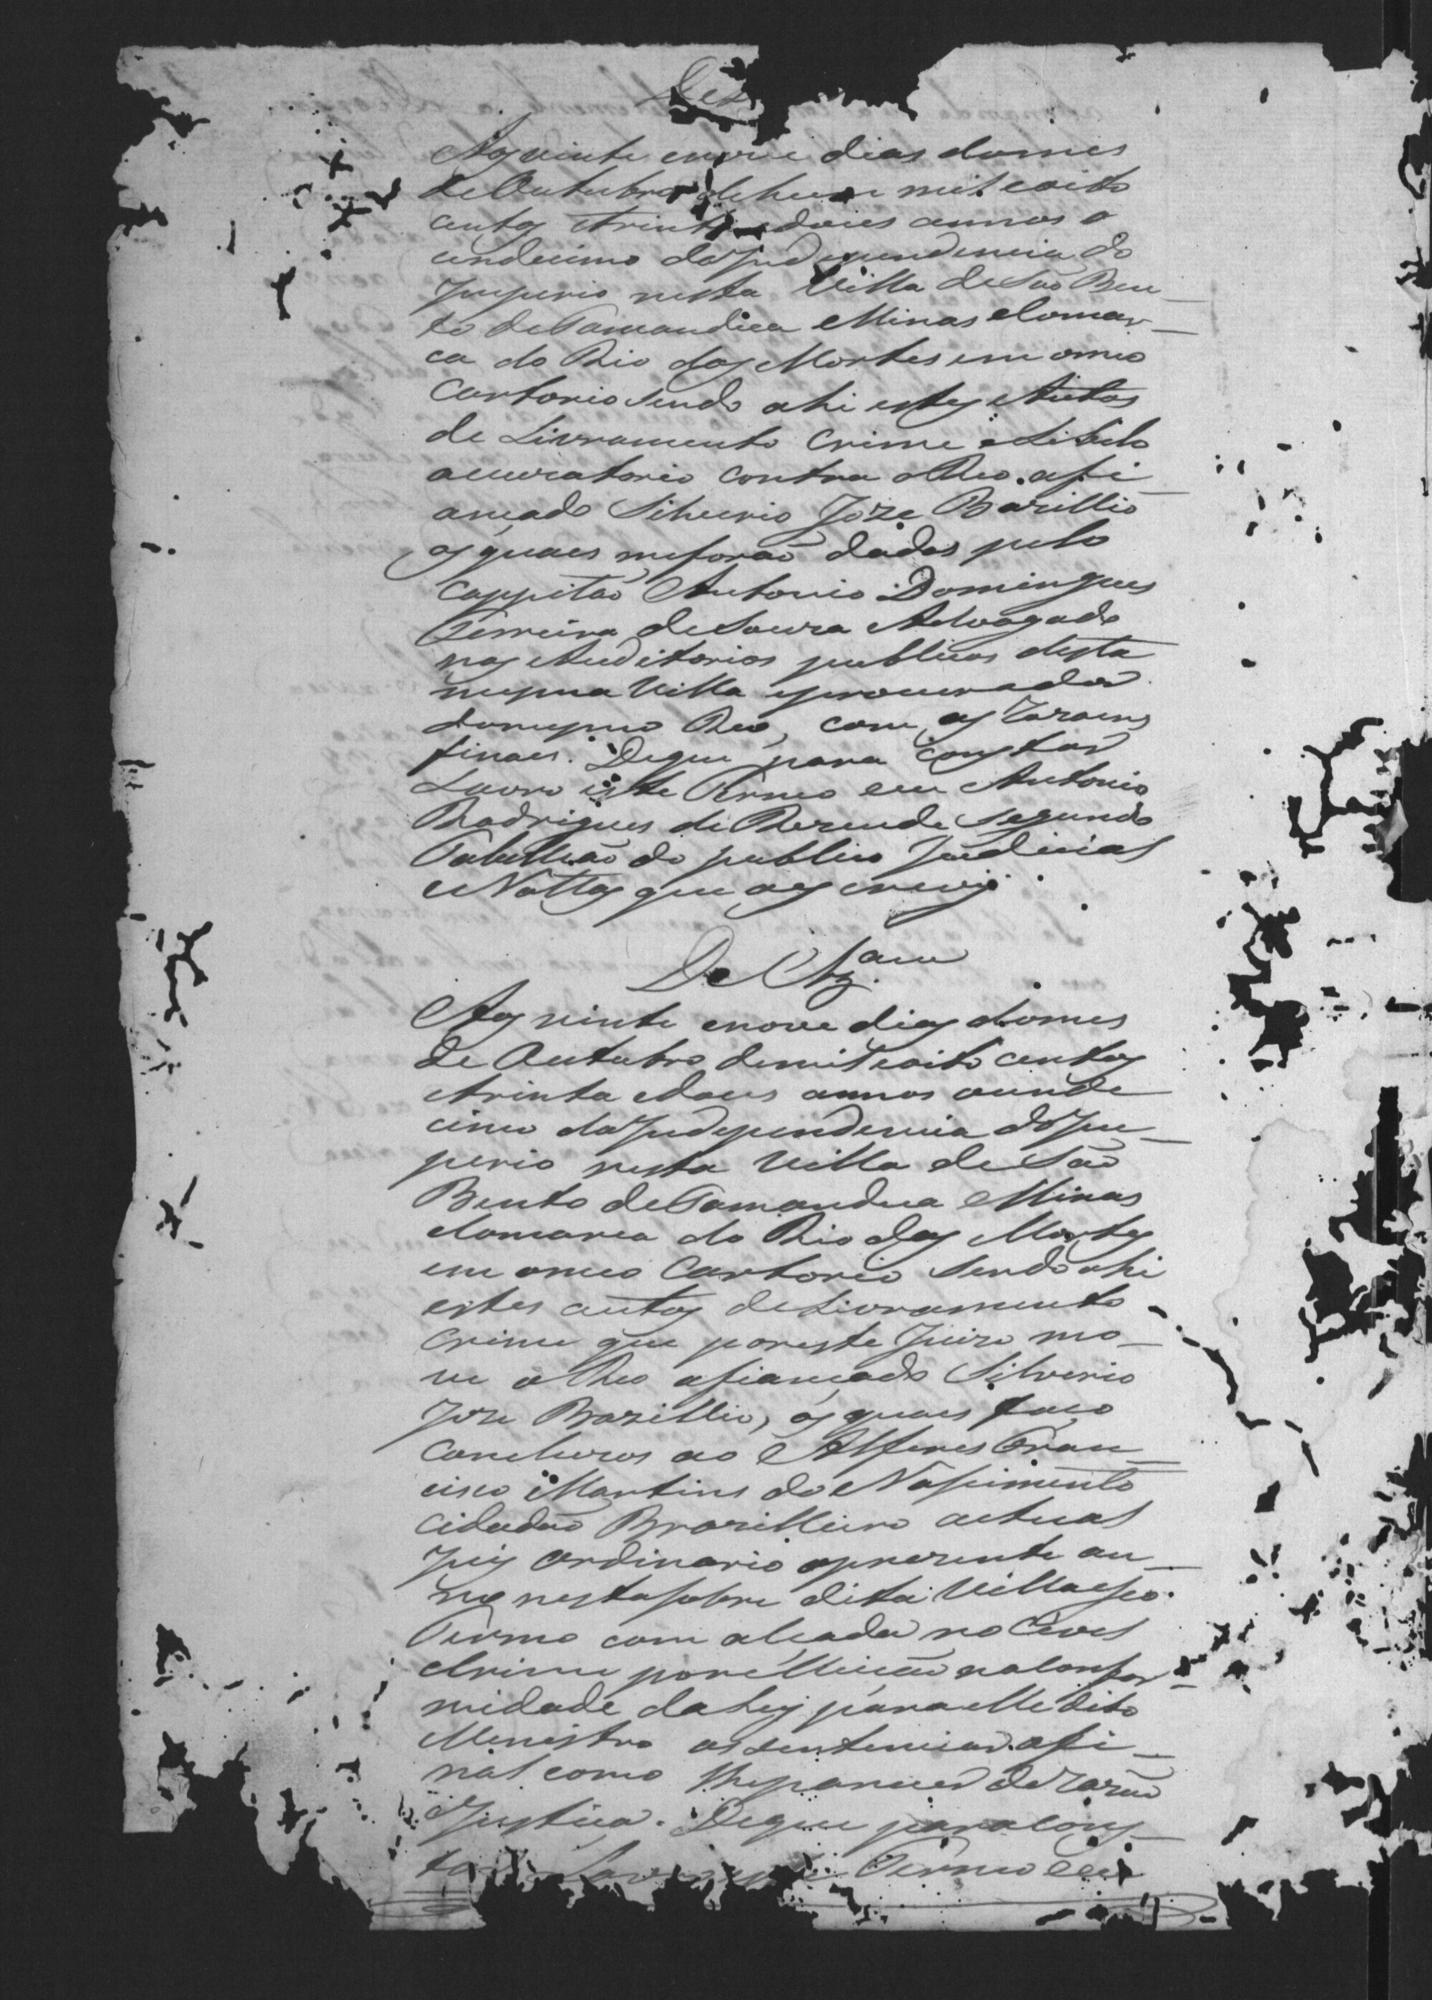 Aos vinte enove dias domes
de Outubro dehum mil eoito
centos etrinta edoies annos o
undecimo da Independencia do
Imperio nesta Villa de São Ben_
to de Tamandua Minas Comar_
ca do Rio das Mortes em omeo
Cartorio sendo ahi estes Autos
de Livramento Crime eLibelo
acuzatorio contra oReo afi_
ançado Silverio Joze Bazillio
os quaes meforão dados pelo
Cappitão Antonio Domingues
Ferreira deSouza Advogado
nos Auditorios publicos desta
mesma Villa eprocurador
domesmo Reo, com as Razoens
finaes. Deque para constar
Lavro este Termo eeu Antonio
Rodrigues de Rezende Segundo
Tabellião do publico Judicial
eNottas que oescrevy
De Clzam
Aos vinte enove dias domes
de Outubro demil eoito centos
etrinta edoes annos ounde
cimo da Independencia do Im_
perio nesta Villa de São
Bento de Tamandua Minas
Comarca do Rio das Mortes
em omeo Cartorio Sendo ahi
estes autos de Livramento
Crime que poreste Juizo mo_
ve oReo afiançado Silverio
Joze Bazillio, os quaes faço
Concluzos ao Alferes Fran_
cisco Martins do Nascimento
cidadão Brazilleiro actual
Juiz Ordinario opresente an_
no nestasobre dita Villa eSeo
Termo com alçada no Civel
eCrime por elleição naConfor_
midade da Ley para elle dito
Menistro os sentenciar afi_
nal como lhe parecer de razão
eJustiça. Deque para Cons_
tar Lavro este Termo eeu